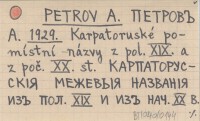 PETROV A. ПЕТРОВЪ
А. 1929. Karpatoruské po-
místní názvy z pol. XIX. a
z poč. XX. st. КАРПАТОРУС-
СКІЯ МЕЖЕВЫЯ НАЗВАНІЯ
ИЗЪ ПОЛ. XIX И ИЗЪ НАЧ. XX В.